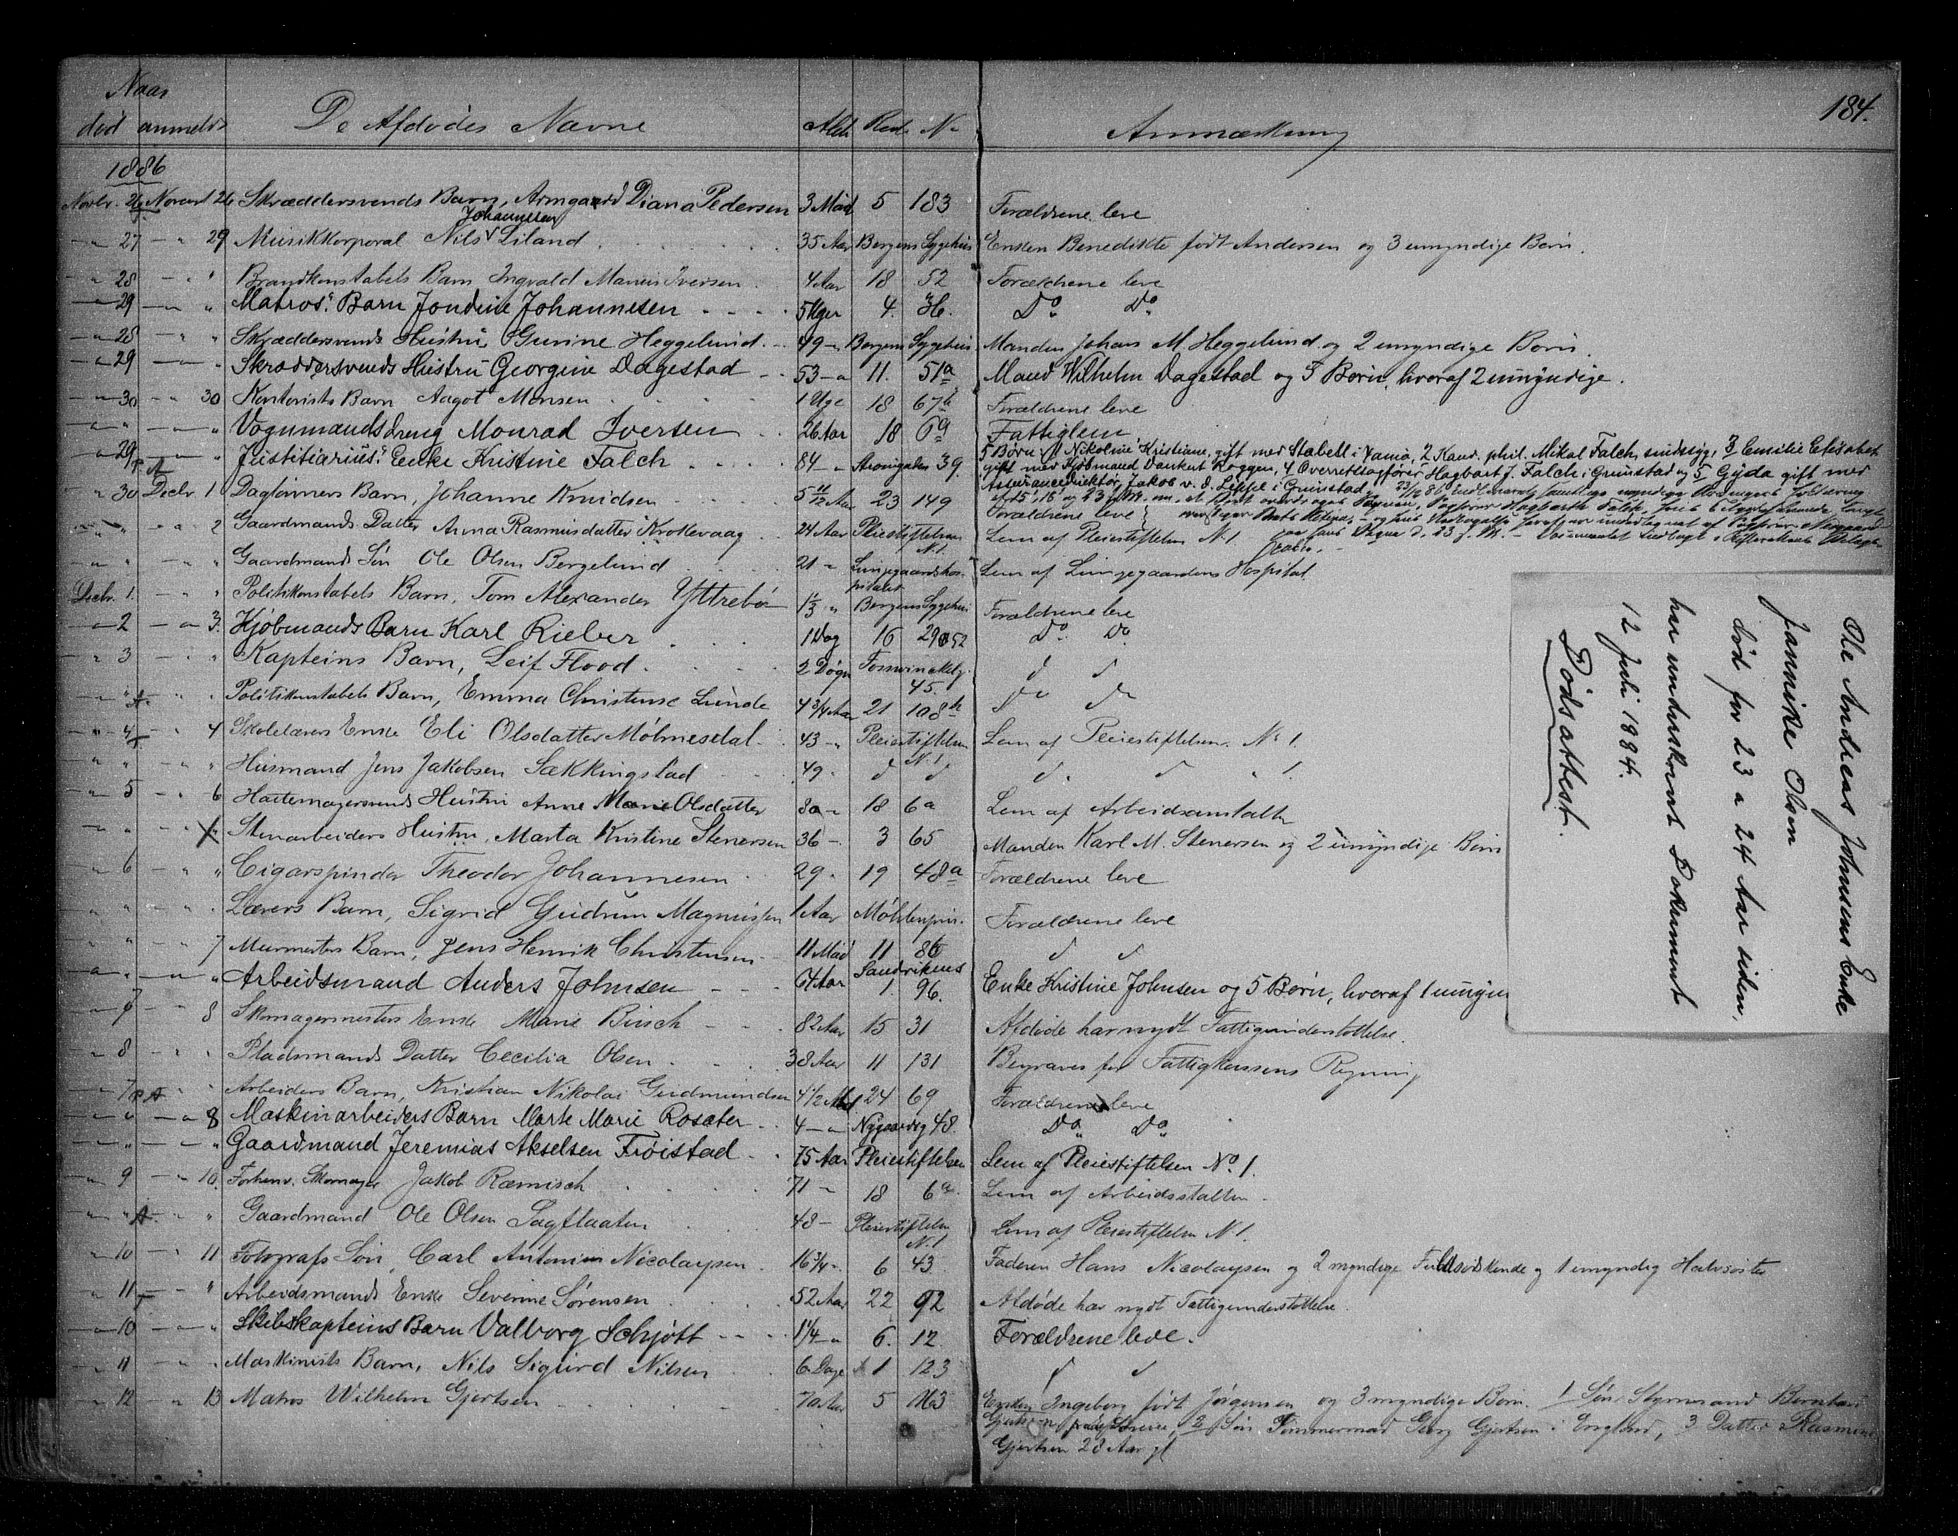 Naar
død anmeldt De Afdødes Navne Alder Rode No Anmærkning 184.
1886
Novbr. 26 Novemb 26 Skræddersvends Barn, Armgaard Diana Pedersen 3 Mdd 5 183 Forældrene leve
Johannessen
" 27 " 29 Musikkorporal Nils Liland 35 Aar Bergens Sygehus Enken Benedikte født Andersen og 3 umyndige Børn.
" 28 " " Brandkonstabels Barn Ingvald Marius Iversen 4 Aar 18 52 Forældrene leve
" 29 " " Matros' Barn Jondine Johannesen 5 Uger 4. 36. Do Do
" 28 " " Skræddersvends Hustru Gurine Heggelund 49 " Bergens Sygehus Manden Johans M. Heggelund og 2 umyndige Børn.
" 29 " " Skræddersvends Hustru Georgine Dagestad 53 " 11. 51a Mand Wilhelm Dagestad og 3 Børn, hvoraf 2 umyndige.
" 30 " 30 Kontorists Barn Aagot Monsen 1 Uge 18 67b Forældrene leve
" " " " Vognmandsdreng Monrad Iversen 26 Aar 18 6a Fattiglem
" 29 " " Justitiarius' Enke Kristine Falch 84 " 39. 5 Børn: 1 Nikoline Kristiane, gift med Stabell i Vamo, 2 Kand. phil. Mikal Falch, sindssyg, 3 Emilie Elisabet
gift med Kjøbmand Dankert Roggen, 4 Overretssagfører Hagbart J. Falch i Grimstad og 5 Gyda gift med
Assurancedirektør Jakob v. d. Lippe i Grimstad.
" 30 Decbr. 1 Dagleiers Barn, Johanne Knudsen 5 11/12 Aar 23 149 Forældrene leve
" " " 2 Gaardmands Datter Anna Rasmusdatter Krokevaag 24 Aar Pleiestiftelsen N.1. Lem af Pleiestiftelsen N.1
" " " " Gaardmands Søn Ole Olsen Bergelund 21 " Lungegaardshospitalet Lem af Lungegaardens Hospital
Decbr. 1. " " Politikonstabels Barn, Tom Alexander Yttrebø 1 1/3 " Bergens Sygehus Forældrene leve
" 2 " 3. Kjøbmands Barn Karl Rieber 1 Dag 16 Do Do
" 3 " " Kapteins Barn, Leif Flood. 2 Døgn 45. d d
" " " " Politikonstabels Barn, Emma Christense Lunde 4 3/4 Aar 21 108b do do
" 4 " 4 Skolelærers Enke Eli Olsdatter Mølmesdal 43 " Pleiestiftelsen N.1. Lem af Pleiestiftelsen. N. 1.
" " " " Husmand Jens Jakobsen Sækkingstad 49 " d d d " d " 1.
" 5 " 6 Hattemagersvends Hustru Anne Marie Olsdatter 80 " 18 6a Lem af Arbeidsanstalten
" " " " Stenarbeiders Hustru, Marta Kristine Stenersen 36 " 3 65 Manden Karl M. Stenersen og 2 umyndige Børn
" 6 " " Cigarspinder Theodor Johannesen 29 " 19 48a Forældrene leve
" " " " Lærers Barn, Sigrid Gudrun Magnussen 1 Aar Møhlenpris. Forældrene leve
" " " 7 Murmesters Barn, Jens Henrik Christensen 11 Mdd 11 86 d d
" " " " Arbeidsmand Anders Johnsen 64 Aar Sandvikens 1. 96. Enke Kristine Johnsen og 5 Børn, hvoraf 1 umyn
" 7 " 8 Skomagermesters Enke Marie Busch 82 Aar 15 31 Afdøde har nydt Fattigunderstøttelse.
" 8 " " Pladsmands Datter Cecilia Olsen 38 Aar 11 131 Begraves for Fattigkassens Regning
" 7 " " Arbeiders Barn, Kristian Nikolai Gudmundsen 4 1/2 Mdd 24 69 Forældrene leve
" " " 8 Maskinarbeiders Barn Marte Marie Rosæter 4 " Nygaardsg 48. Do Do
" " " " Gaardmand Jeremias Akselsen Frøistad 75 Aar Pleiestiftelsen Lem af Pleiestiftelsen No 1.
" 9 " 10. Forhenv. Skomager Jakob Ræmisch 71 " 18 6a. Lem af Arbeidsstalten.
" " " " Gaardmand Ole Olsen Sagflaaten 48 " Pleiestiftelsen N.1 Lem af Pleiestiftelsen N.1.
" 10 " 11 Fotografs Søn, Carl Antonius Nicolaysen 16 3/4 " 6 43 Faderen Hans Nicolaysen og 2 myndige Fuldsødskende og 1 umyndig Halvsøster
" 11 " " Arbeidsmands Enke Severine Sørensen 52 Aar 22 92 Afdøde har nydt Fattigunderstøttelse.
" 10 " " Skibskapteins Barn Valborg Schjøtt 1 1/4 " 6. 12. Forældrene leve.
" 11 " " Maskinists Barn, Nils Sigurd Nilsen 6 Dage 1 123 d d
" 12 " 13 Matros Wilhelm Gjertsen 70 Aar 5 163 Enken Ingeborg født Jørgensen og 3 myndige Børn. 1 Søn Styrmand Berntsen
Gjertsen, 2 Søn Tømmermand Georg Gjertsen i England, 3 Datter Rasmine
Gjertsen 28 Aar gl
Ole Andreas Johnsens Enke
Jannike Olsen
død for 23 a 24 Aar siden,
har underskrevet Dokument
12 Juli 1884.
Dødsattest.